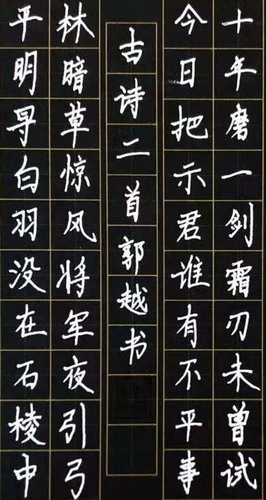 十年磨一剑霜刃未曾试
今日把示君谁有不平事
古诗二首郭越书
林暗草惊风将军夜引弓
平明寻白羽没在石棱中